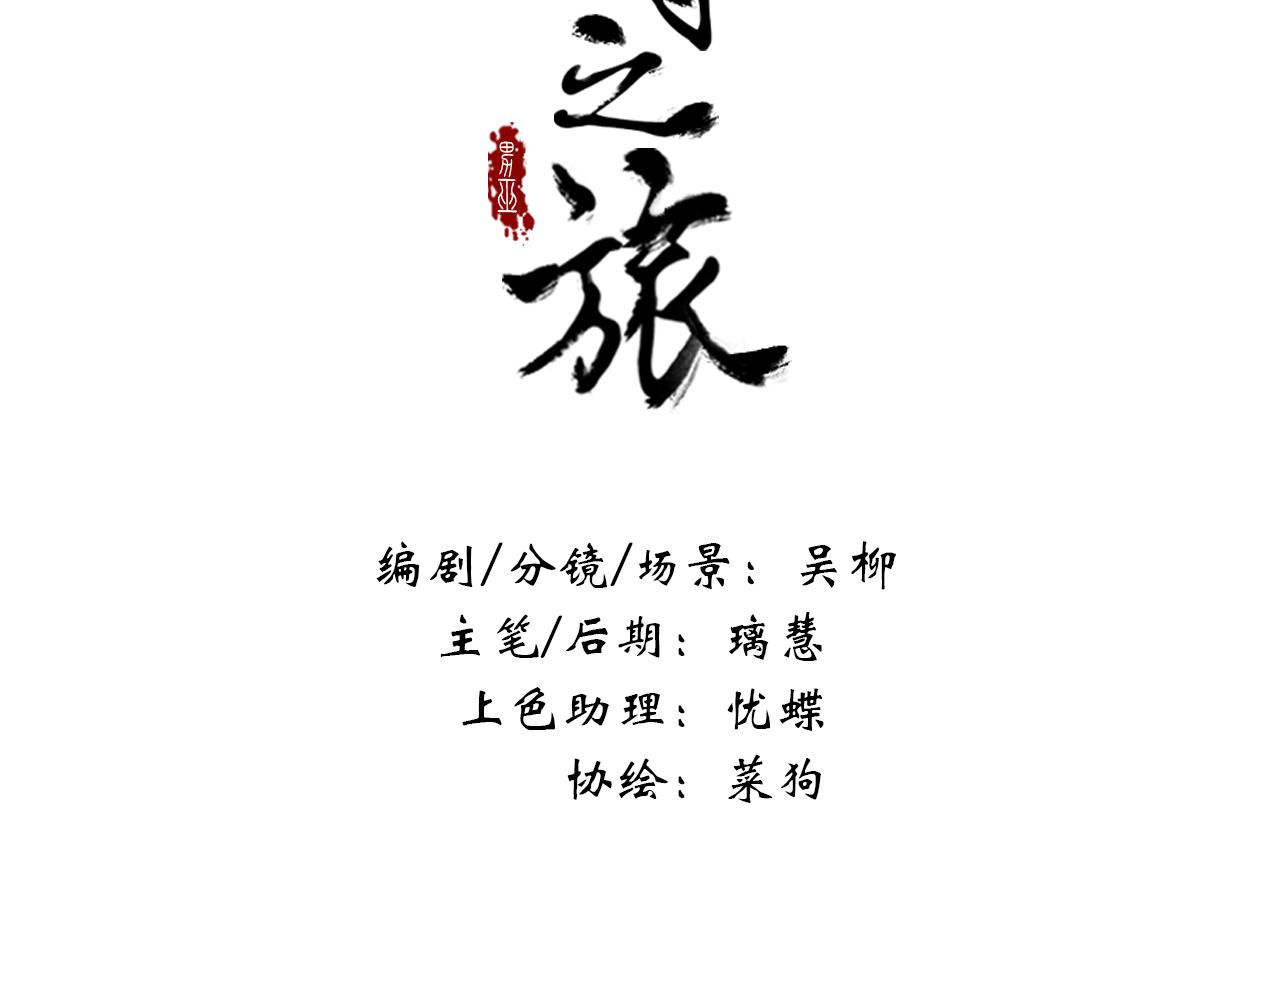 之旅
男巫
编剧/分镜/场景：吴柳
主笔/后期：璃慧
上色助理：忧蝶
协绘：菜狗